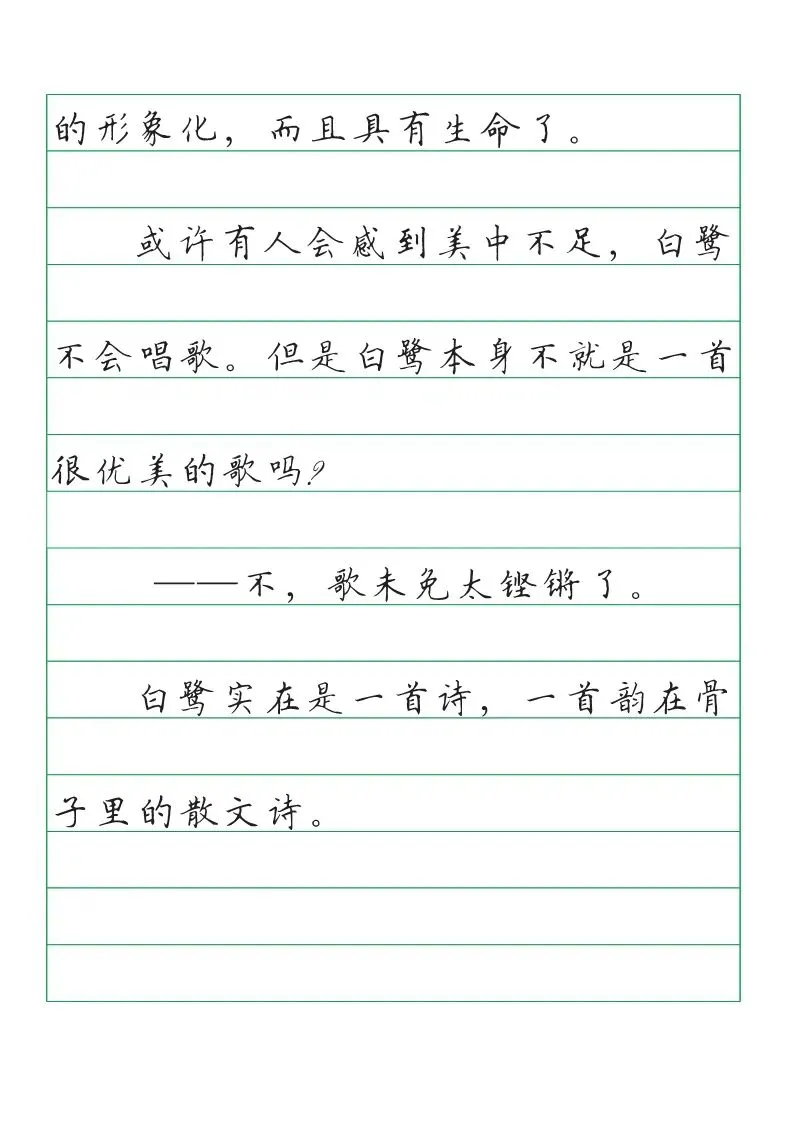 的形象化，而且具有生命了。
或许有人会感到美中不足，白鹭
不会唱歌。但是白鹭本身不就是一首
很优美的歌吗？
——不，歌未免太铿锵了。
白鹭实在是一首诗，一首韵在骨
子里的散文诗。